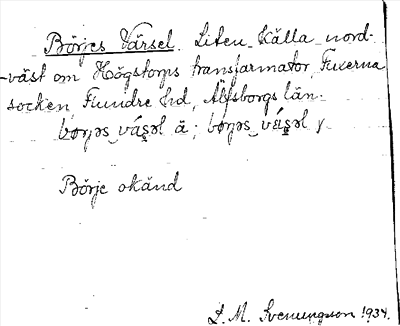 Börjes Värsel. Liten källa nord-
väst om Högstorps transformator, Fuxerna
socken, Flundre hd, Älvsborgs län.
ä; y
Börje okänd
L. M. Svenungsson 1934.